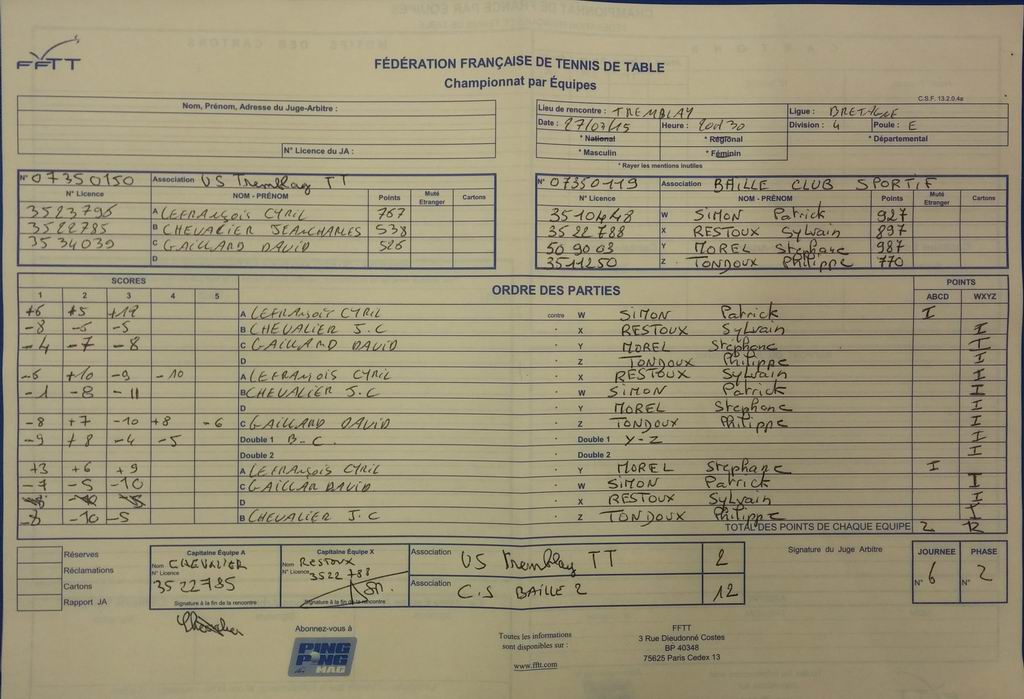 FFTT
FÉDÉRATION FRANÇAISE DE TENNIS DE TABLE
Championnat par Équipes
C.S.F. 13.2.0.4a
Nom, Prénom, Adresse du Juge-Arbitre :
N° Licence du JA :
Lieu de rencontre : TREMBLAY Ligue : BRETAGNE
Date : 27/03/15 Heure : 20H30 Division : 4 Poule : E
* National * Régional * Départemental
* Masculin * Féminin
* Rayer les mentions inutiles
N° 07350150 Association US Tremblay TT
N° Licence NOM - PRÉNOM Points Muté Etranger Cartons
3523795 A LEFRANÇOIS CYRIL 767
3522785 B CHEVALIER JEANCHARLES 538
3534039 C GAILLARD DAVID 526
D
N° 07350119 Association BAILLE CLUB SPORTIF
N° Licence NOM - PRÉNOM Points Muté Etranger Cartons
3510448 W SIMON Patrick 927
3522788 X RESTOUX Sylvain 897
509003 Y MOREL Stéphane 987
3511250 Z TONDOUX Philippe 770
SCORES ORDRE DES PARTIES POINTS
1 2 3 4 5 ABCD WXYZ
+6 +5 +12 A LEFRANÇOIS CYRIL contre W SIMON Patrick I
-8 -5 -5 B CHEVALIER J.C X RESTOUX Sylvain I
-4 -7 -8 C GAILLARD DAVID Y MOREL Stéphane I
D Z TONDOUX Philippe I
-6 +10 -9 -10 A LEFRANÇOIS CYRIL X RESTOUX Sylvain I
-1 -8 -11 B CHEVALIER J.C W SIMON Patrick I
D Y MOREL Stephane I
-8 +7 -10 +8 -6 C GAILLARD DAVID Z TONDOUX Philippe I
-9 +8 -4 -5 Double 1 B-C Double 1 Y-Z I
Double 2 Double 2 I
+3 +6 +9 A LEFRANÇOIS CYRIL Y MOREL Stephane I
-7 -5 -10 C GAILLAR DAVID W SIMON Patrick I
D X RESTOUX Sylvain I
-8 -10 -5 B CHEVALIER J.C Z TONDOUX Philippe I
TOTAL DES POINTS DE CHAQUE EQUIPE 2 12
Réserves
Réclamations
Cartons
Rapport JA
Capitaine Équipe A
Nom CHEVALIER
N° Licence
3522785
Signature à la fin de la rencontre
Capitaine Équipe X
Nom RESTOUX
N° Licence 3522788
Signature à la fin de la rencontre
Association US Tremblay TT 2
Association C.S BAILLE 2 12
Signature du Juge Arbitre
JOURNEE PHASE
N° 6 N° 2
Abonnez-vous à
PING PONG MAG
Toutes les informations
sont disponibles sur :
www.fftt.com
FFTT
3 Rue Dieudonné Costes
BP 40348
75625 Paris Cedex 13